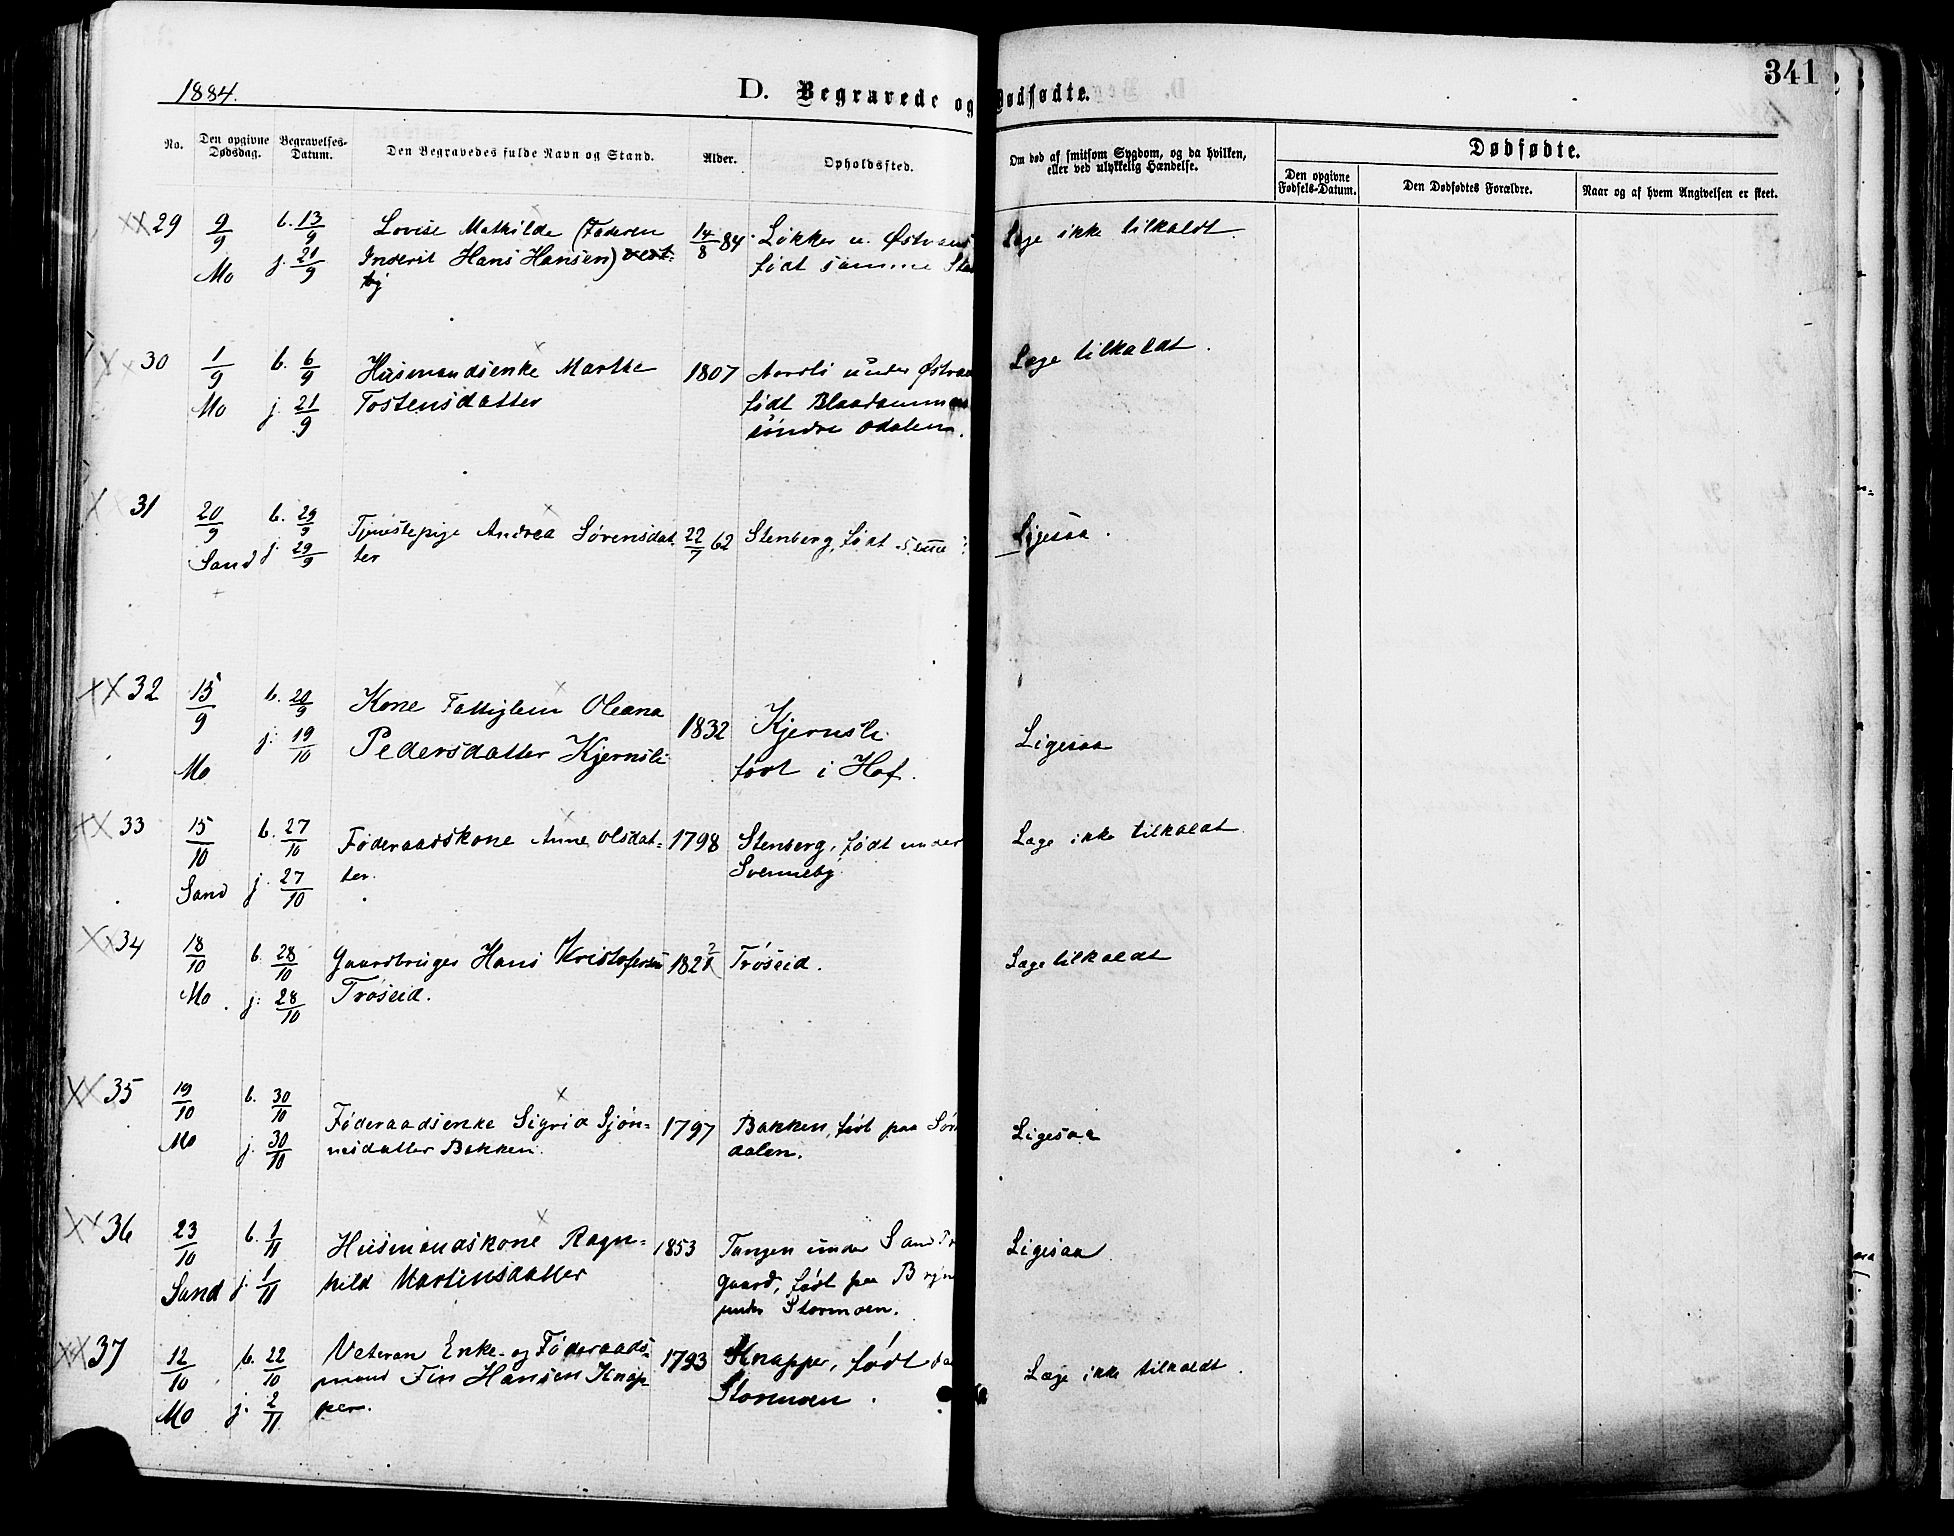 1884.
D. Begravede og Dødfødte.
341
No.
Den opgivne Dødsdag.
Begravelses-Datum.
Den Begravedes fulde Navn og Stand.
Alder.
Opholdssted.
Om død af smitsom Sygdom, og da hvilken,
eller ved ulykkelig Hændelse.
Dødfødte.
Den opgivne Fødsels-Datum.
Den Dødfødtes Forældre.
Naar og af hvem Angivelsen er skeet.
29 9/9 Mo b. 13/9 j. 21/9
Lovise Mathilde (Faderen
Inderst Hans Hansen)
14/8 84
Løkker u.
født samme
Læge ikke tilkaldt
30 1/9 Mo b. 6/9 j. 21/9
Husmandsenke Marthe
Tostensdatter
1807
under
født
søndre Odalen.
Læge tilkaldt.
31 20/9 Sand b. 29/9 j. 29/9
Tjenestepige Andrea Sørensdat
ter
22/7 62
Stenberg, født
Ligesaa.
32 15/9 Mo b. 20/9 j. 19/10
Kone Fattiglem Oleana
Pedersdatter Kjernsli
1832
Kjernsli
født i Hof.
Ligesaa
33 15/10 Sand b. 27/10 j. 27/10
Føderaadskone Anne Olsdat-
ter.
1798
Stenberg, født under
Svenneby
Læge ikke tilkaldt
34 18/10 Mo b. 28/10 j. 28/10
Gaardbruger Hans Kristofersen
Trøseid.
Trøseid.
Læge tilkaldt
35 19/10 Mo b. 30/10 j. 30/10
Føderaadsenke Sigrid Sjøn-
nesdatter Bakken.
1797
Bakken, født paa
dalen.
Ligesaa
36 23/10 Sand b. 1/11 j. 1/11
Husmandskone Ragn-
hild Martinsdatter
1853
Tangen under Sand
gaard, født paa
under Stormoen.
Ligesaa
37 12/10 Mo b. 22/10 j. 2/11
Veteran Enke- og Føderaads-
mand Fin Hansen Knap-
per.
1793
Knapper, født
Stormoen.
Læge ikke tilkaldt.